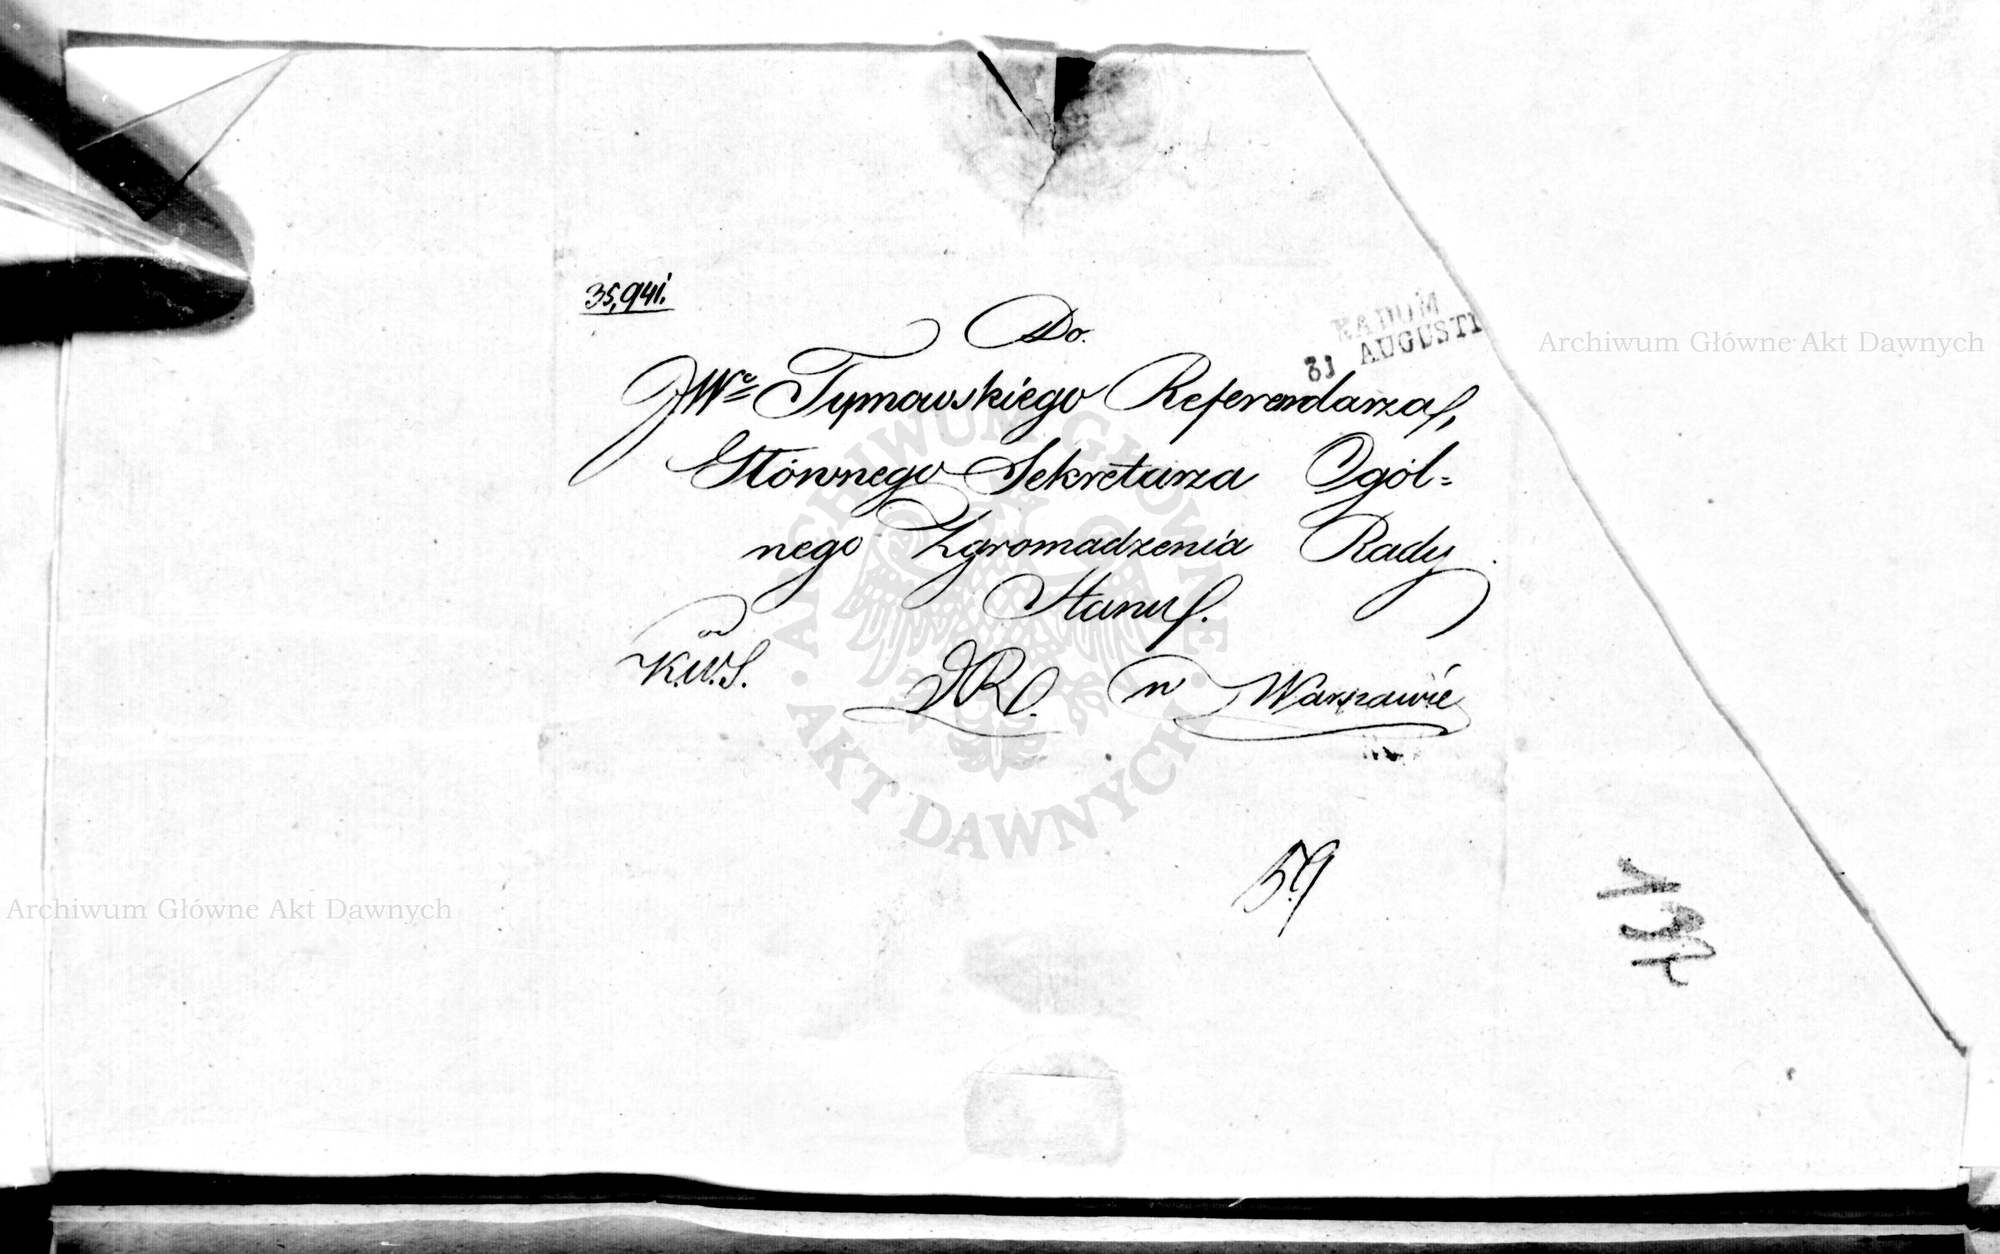 35,941.
Do.
RADOM
31 AUGUSTI
JWo Tymowskiego Referendarza,
Głównego Sekretarza Ogól=
nego Zgromadzenia Rady
Stanu.
od
K.W.S.
w Warszawie
59
Archiwum Główne Akt Dawnych
Archiwum Główne Akt Dawnych
ARCHIWUM GŁÓWNE
AKT DAWNYCH